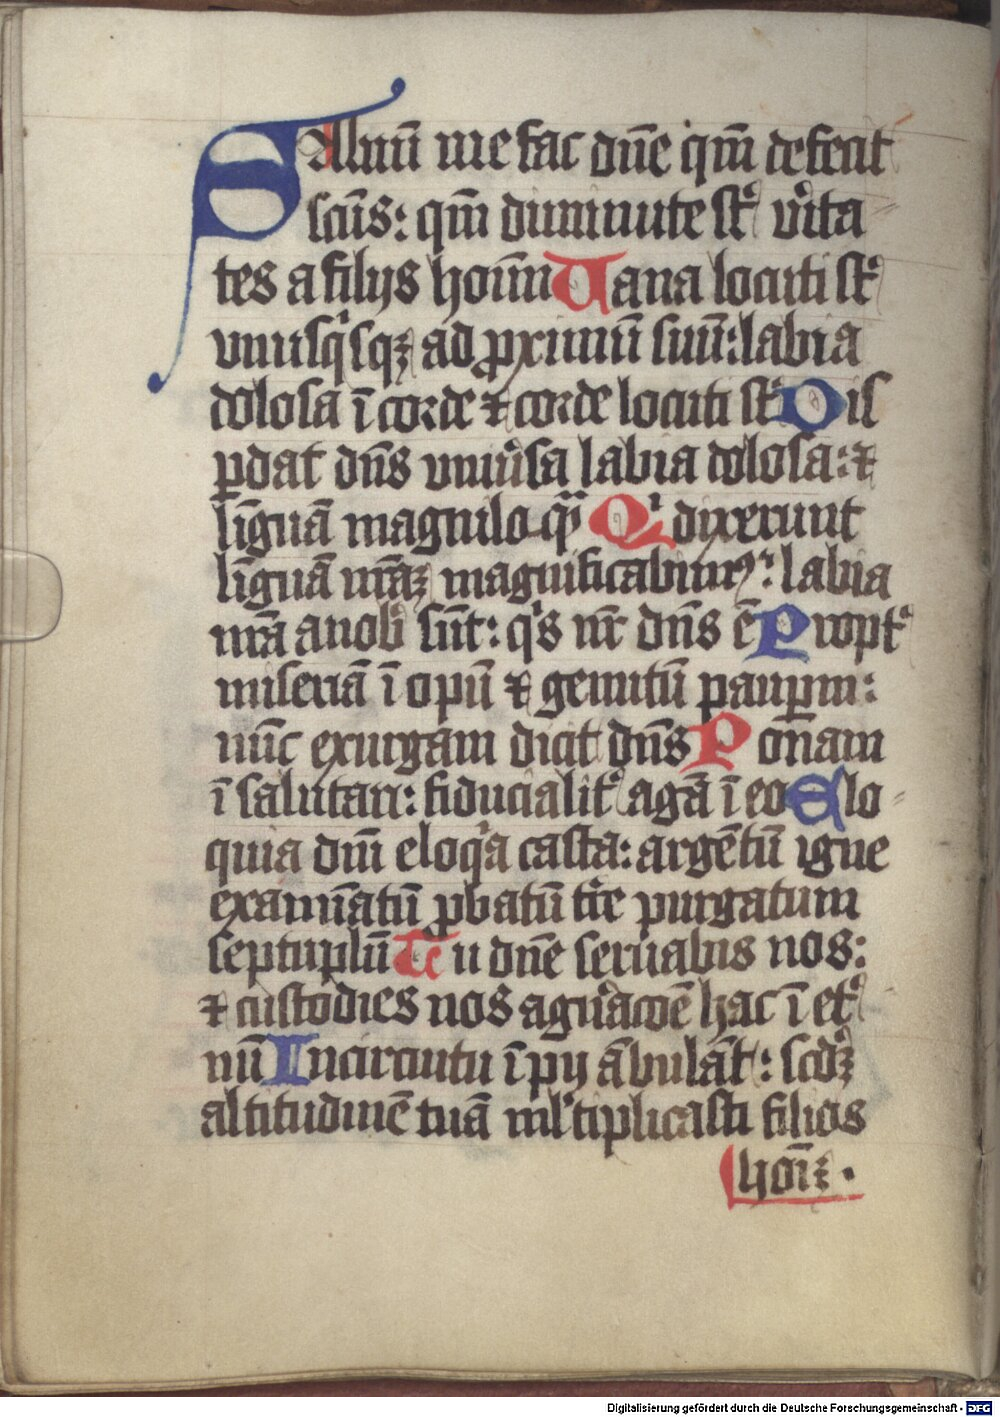 SAluū me fac dn̄e qm̄ defecit
scūs: qm̄ diminute st̄ v̓ita
tes a filijs hoīm Uana locuti st̄
vnusq̓sqꝫ ad ꝓximū suū: labia
dolosa ī corde ⁊ corde locuti st̄ Dis
ꝑdat dn̄s vniu̓sa labia dolosa: ⁊
līguā magniloqᷓ Qⁱ dixerunt
līguā nr̄aꝫ magnificabimꝰ: labia
nr̄a a nob̓ sūt: qⁱs nr̄ dn̄s ē Propt̓
miseriā īopū ⁊ gemitū pauꝑm:
nūc exurgam dicit dn̄s Ponam
ī salutari: fiducialit̓ agā ī eo Elo
quia dn̄i eloqⁱa casta: argētū igne
examīatū ꝓbatū t̓re purgatum
septuplū Tu dn̄e seruabis nos:
⁊ custodies nos a gn̓acōe hac ī et̓
nū In circuitu īpij ābulāt: scd̓ꝫ
altitudinē tuā ml̓tiplicasti filios
hoīꝫ.
Digitalisierung gefördert durch die Deutsche Forschungsgemeinschaft - DFG